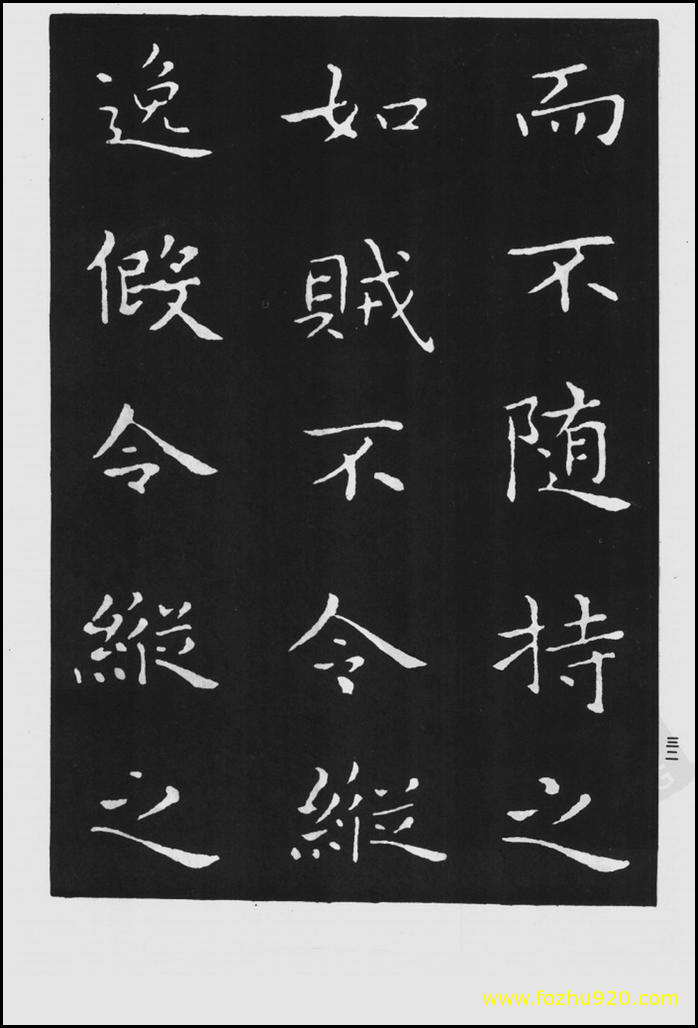 而不随持之
如賊不令縱
逸假令縱之
三三
www.fozhu920.com